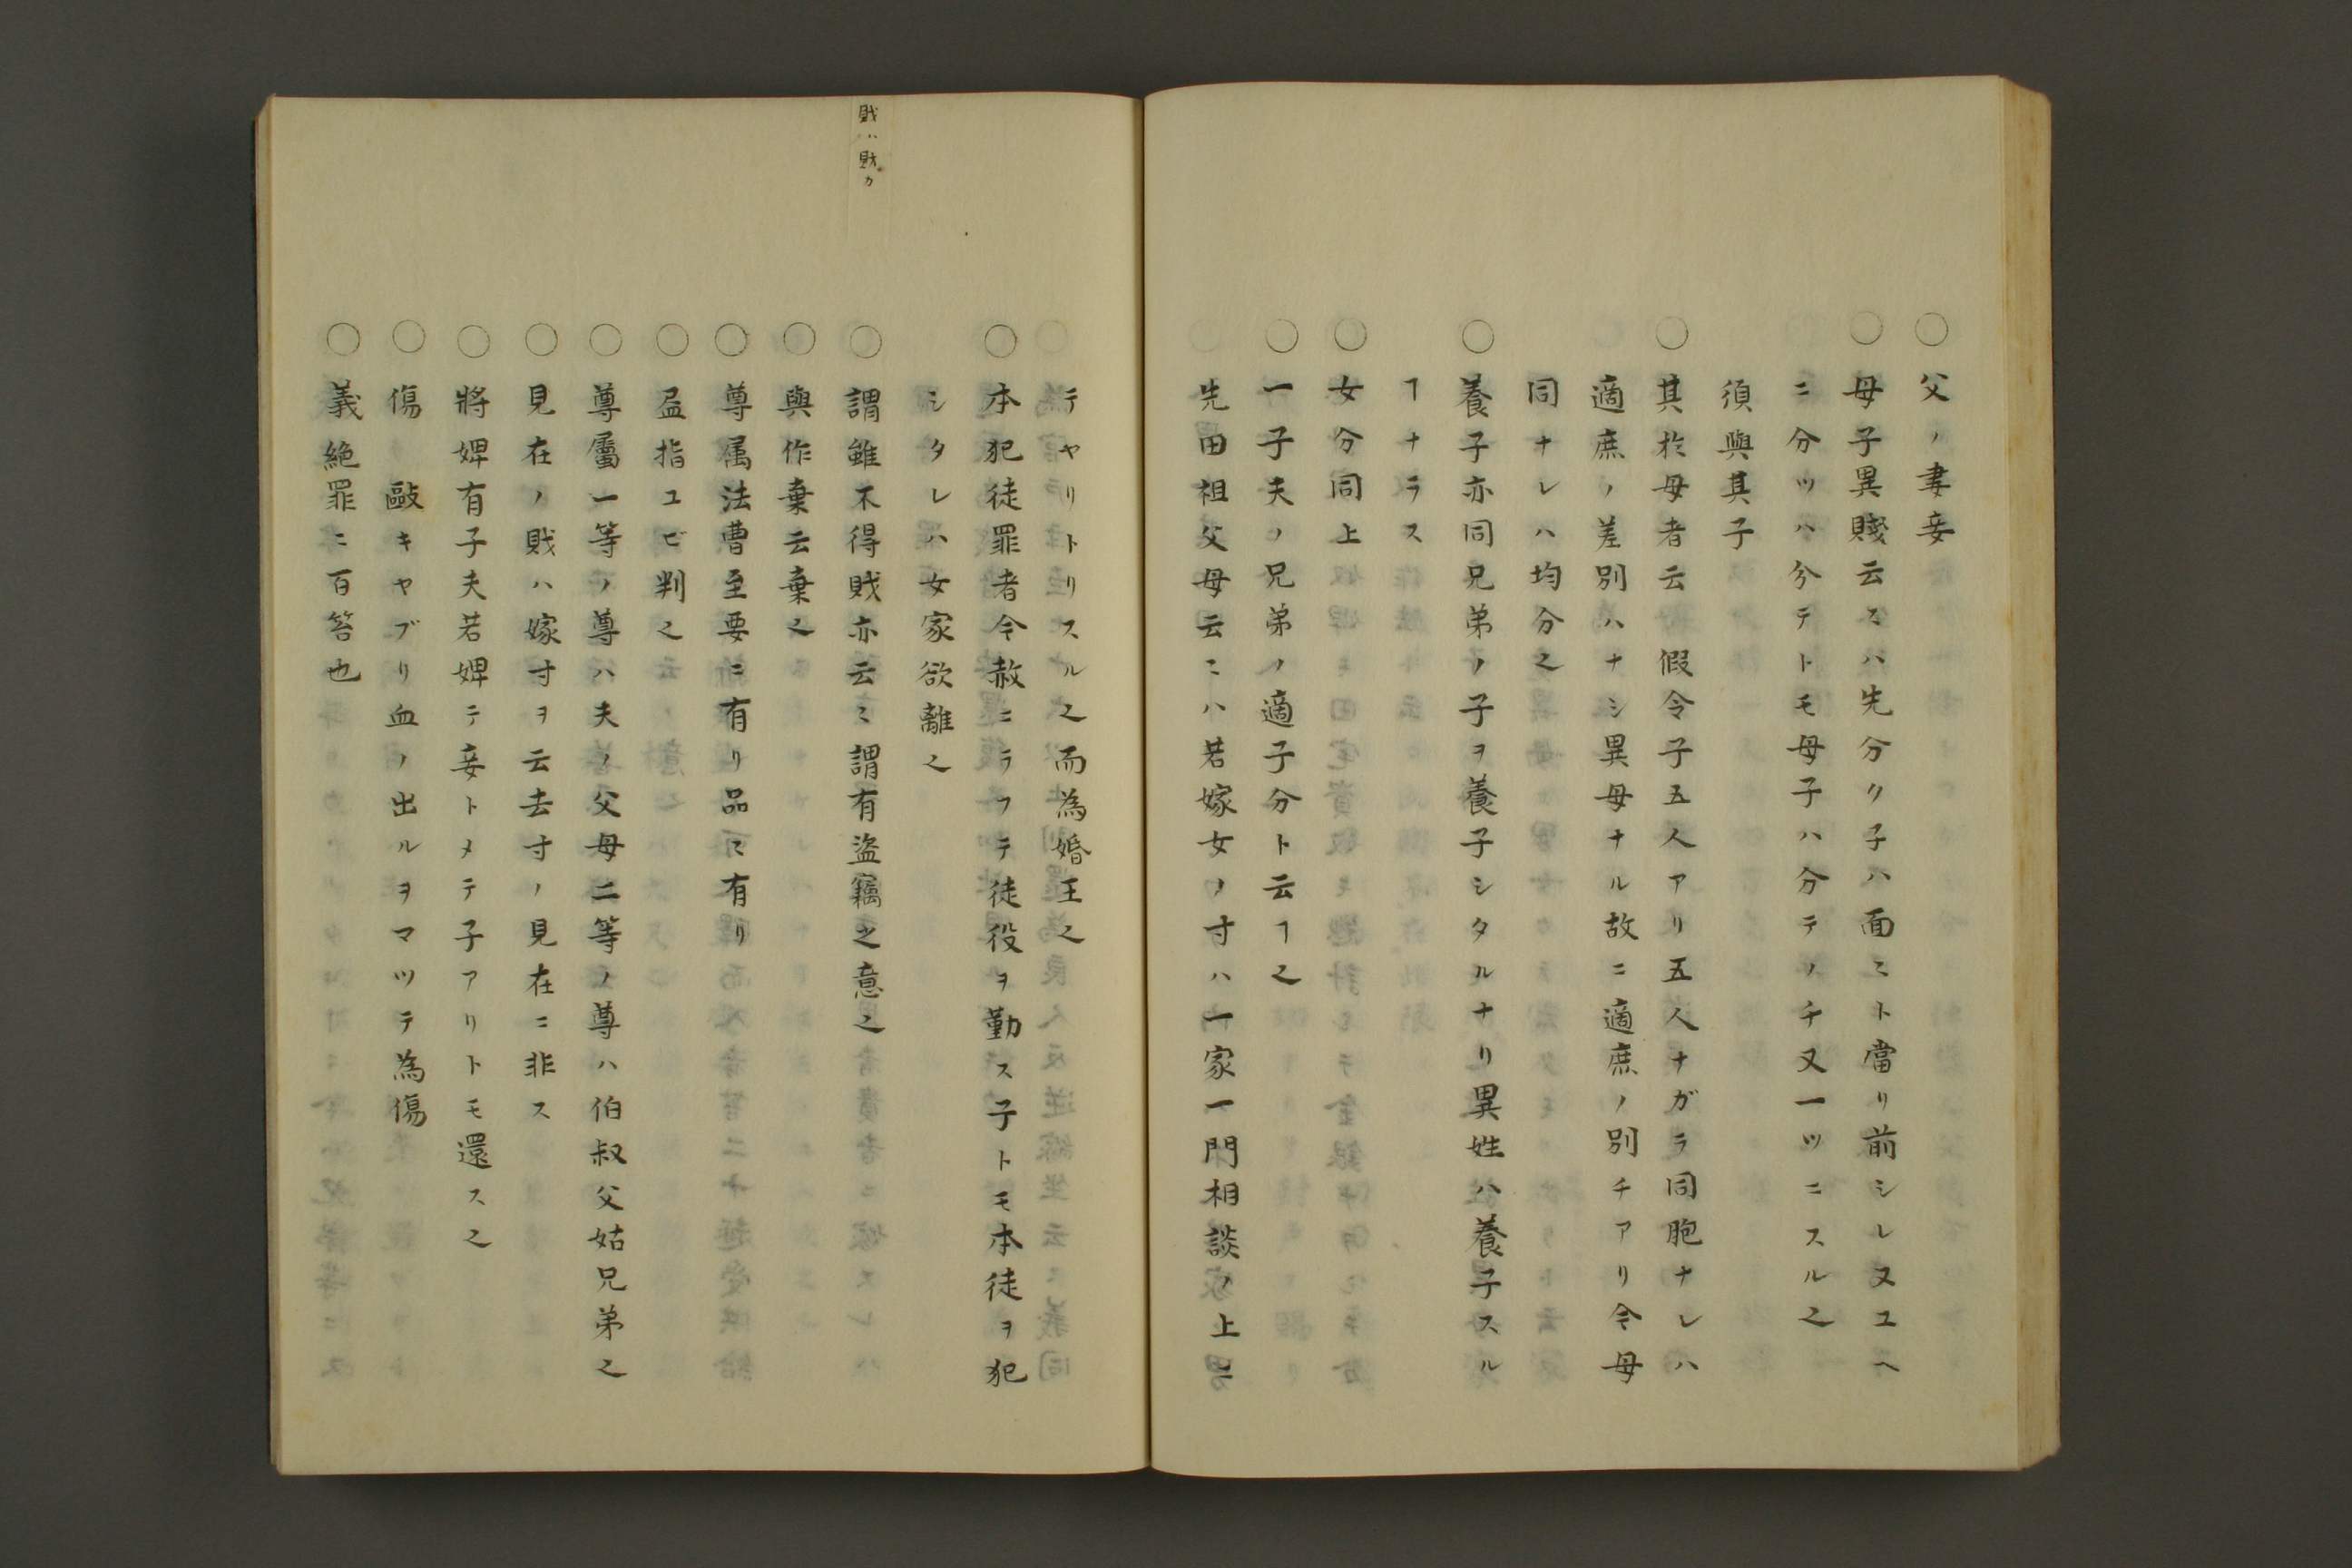 ○父ノ妻妾
○母子異賤云〻ハ先分ク子ハ面〻ト當リ前シレ又ユヘ
ニ分ツハ分テトモ母子ハ分テノチ又一ツニスル之
須與其子
○其於母者云　假令子五人アリ五人ナガラ同胞ナレハ
適庶ノ差別ハナシ異母ナル故ニ適庶ノ別チアリ令母
同ナレハ均分之
○養子亦同兄弟ノ子ヲ養子シタルナリ異姓ハ養子スル
ヿナラス
○女分同上
○一子夫ノ兄弟ノ適子分ト云ヿ之
先田祖父母云〻ハ若嫁女ノ寸ハ一家一門相談ノ上ニ
テヤリトリスル之而為婚王之
○本犯徒罪者令赦ニラフテ徒役ヲ勤ス子トモ本徒ヲ犯
シタレハ女家欲離之
○謂雖不得賎亦云〻謂有盗竊之意之
○與作棄云棄之
○尊属法曹至要ニ有リ品〻有リ
○皿指ユビ判之
○尊屬一等ノ尊ハ夫ノ父母二等ノ尊ハ伯叔父姑兄弟之
○見在ノ賎ハ嫁寸ヲ云去寸ノ見在ニ非ス
○將婢有子夫若婢テ妾トメテ子アリトモ還ス之
○傷　毆キヤブリ血ノ出ルヲマツテ為傷
○義絶罪ニ百笞也
賎ハ財カ